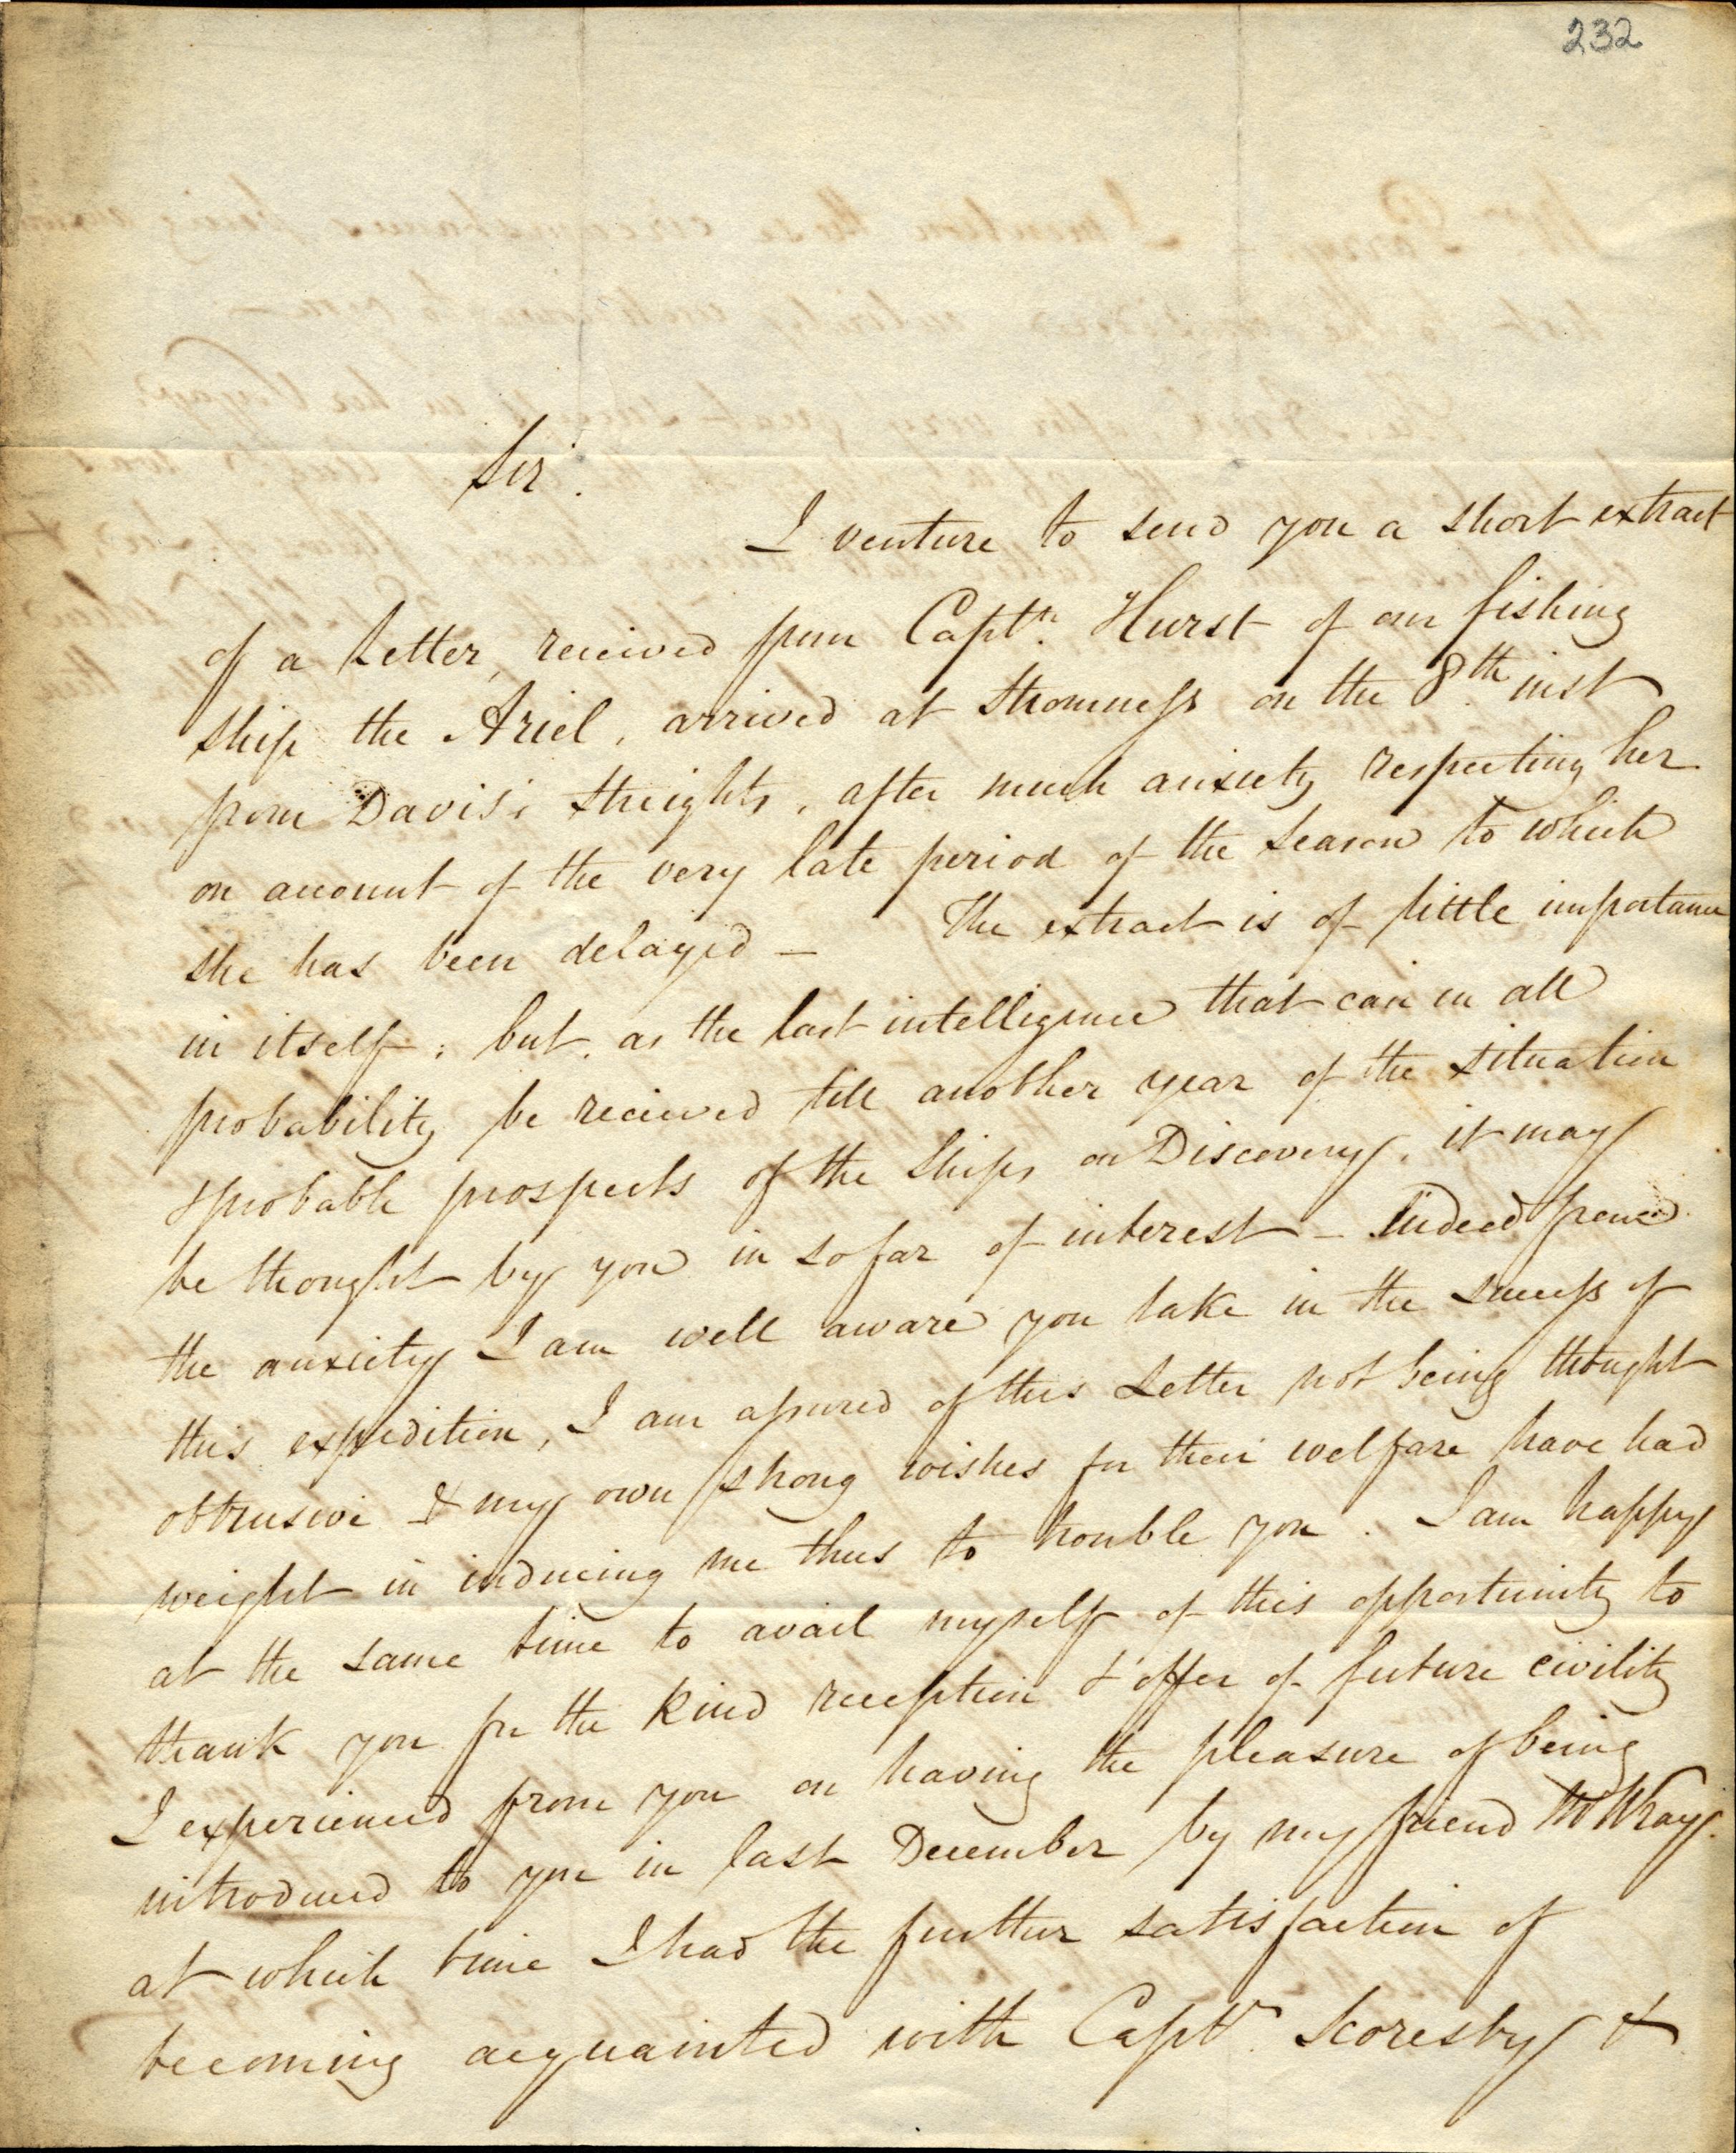 232
Sir.
I venture to send you a short extract
of a Letter, received from Captn. Hurst of our fishing
ship the Ariel, arrived at Stromness on the 8th. inst
from Davis's Streights, after much anxiety respecting her
on account of the very late period of the Season to which
she has been delayed — The extract is of little importance
in itself; but, as the last intelligence that can in all
probability be received till another year of the situation
& probable prospects of the Ships on Discovery, it may
be thought by you in so far of interest – Indeed from
the anxiety I am well aware you take in the success of
this expedition, I am assured of this Letter not being thought
obtrusive & my own strong wishes for their welfare have had
weight in inducing me thus to trouble you. I am happy
at the same time to avail myself of this opportunity to
thank you for the kind reception & offer of future civility
I experienced from you on having the pleasure of being
introduced to you in last December by my friend Mr Wray.
at which time I had the further satisfaction of
becoming acquainted with Captn. Scoresby &